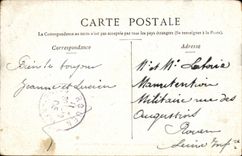 CARTE POSTALE
La Correspondance au recto n'est pas acceptée par tous les pays étrangers (Se renseigner à la Poste)
Correspondance
Adresse
Bien le bonjour
Jeanne et Lucien
Mr et Me
Manutention
Militaire rue des
Augustins
Rouen
Seine Infre